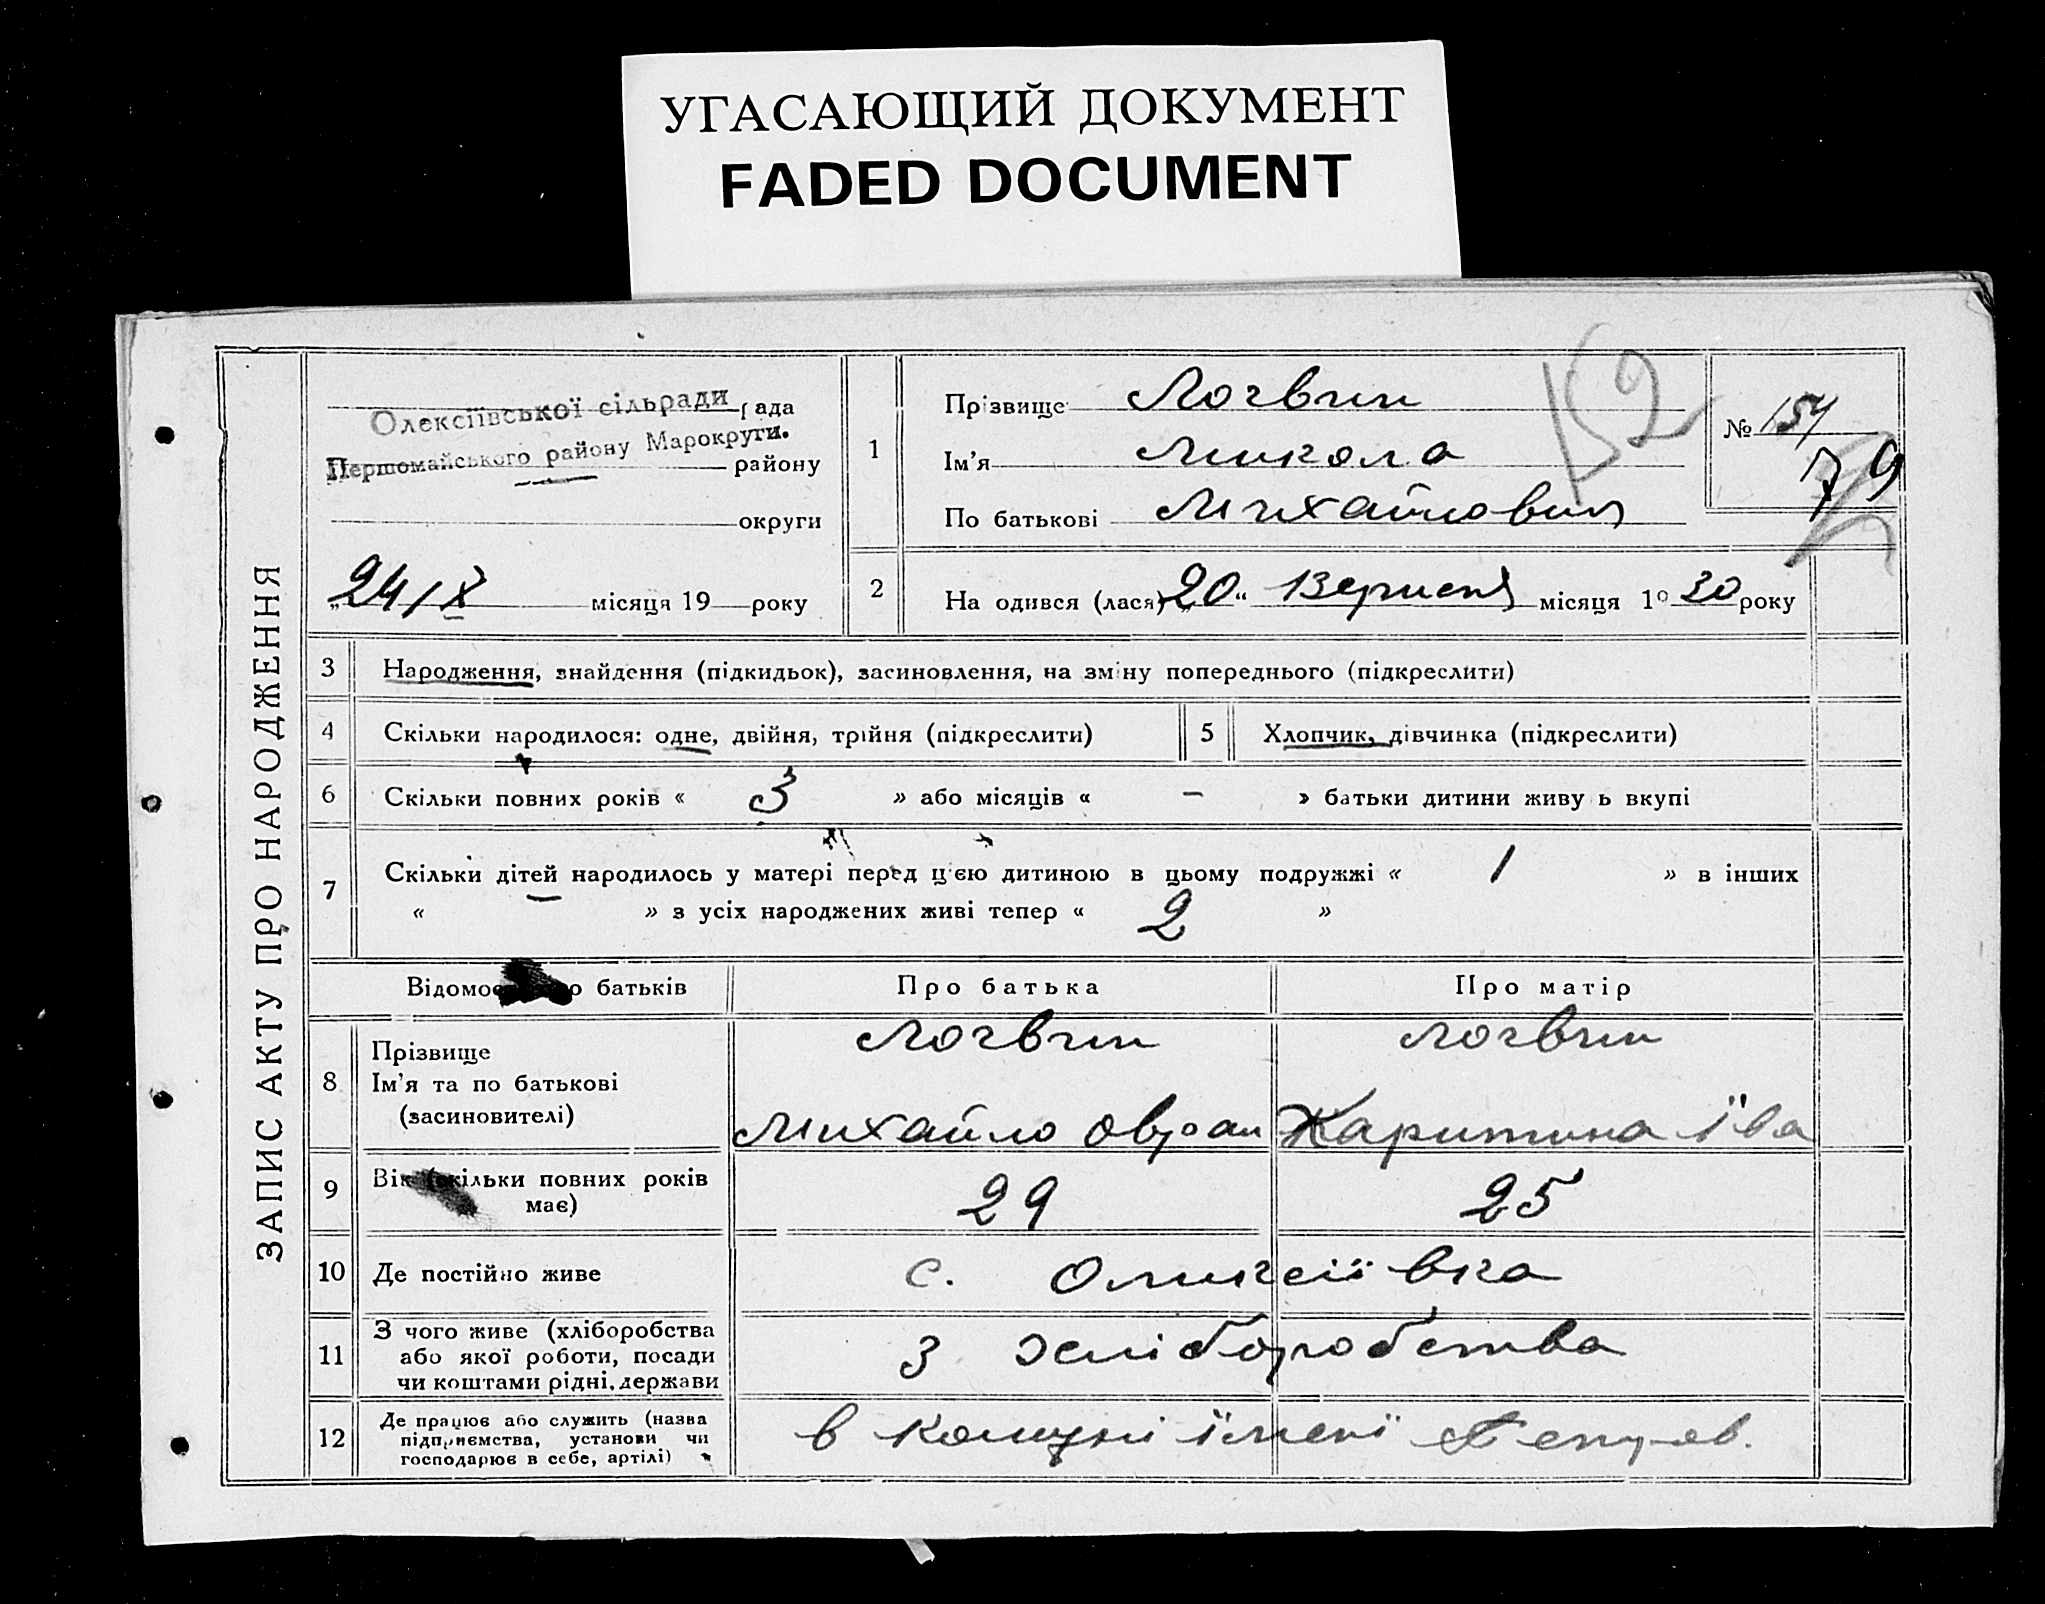 УГАСАЮЩИЙ ДОКУМЕНТ
FADED DOCUMENT
ЗАПИС АКТУ ПРО НАРОДЖЕННЯ
Олексіївської сільради рада
Першомайського району Марокруги. району
округи
24/X місяця 19 року
1
Прізвище Логвин
Ім'я Микола
По батькові Михайлович
152
№ 154
79
2
На одився (лася) „20“ Вересня місяця 19 30 року
3 Народження, знайдення (підкидьок), засиновлення, на зміну попереднього (підкреслити)
4 Скільки народилося: одне, двійня, трійня (підкреслити) 5 Хлопчик, дівчинка (підкреслити)
6 Скільки повних років « 3 » або місяців « – » батьки дитини живу ь вкупі
7 Скільки дітей народилось у матері перед ц'єю дитиною в цьому подружжі « 1 » в інших
« – » з усіх народжених живі тепер « 2 »
Відомо о батьків Про батька Про матір
8 Прізвище
Ім'я та по батькові
(засиновителі)
Логвин Логвин
Михайло Овран Харитина Іва
9 Вік (скільки повних років
має)
29 25
10 Де постійно живе с. Оликсіївка
11 З чого живе (хліборобства
або якої роботи, посади
чи коштами рідні, держави
З хліборобства
12 Де працює або служить (назва
підприємства, установи чи
господарює в себе, артілі)
в комуні імені Петров.